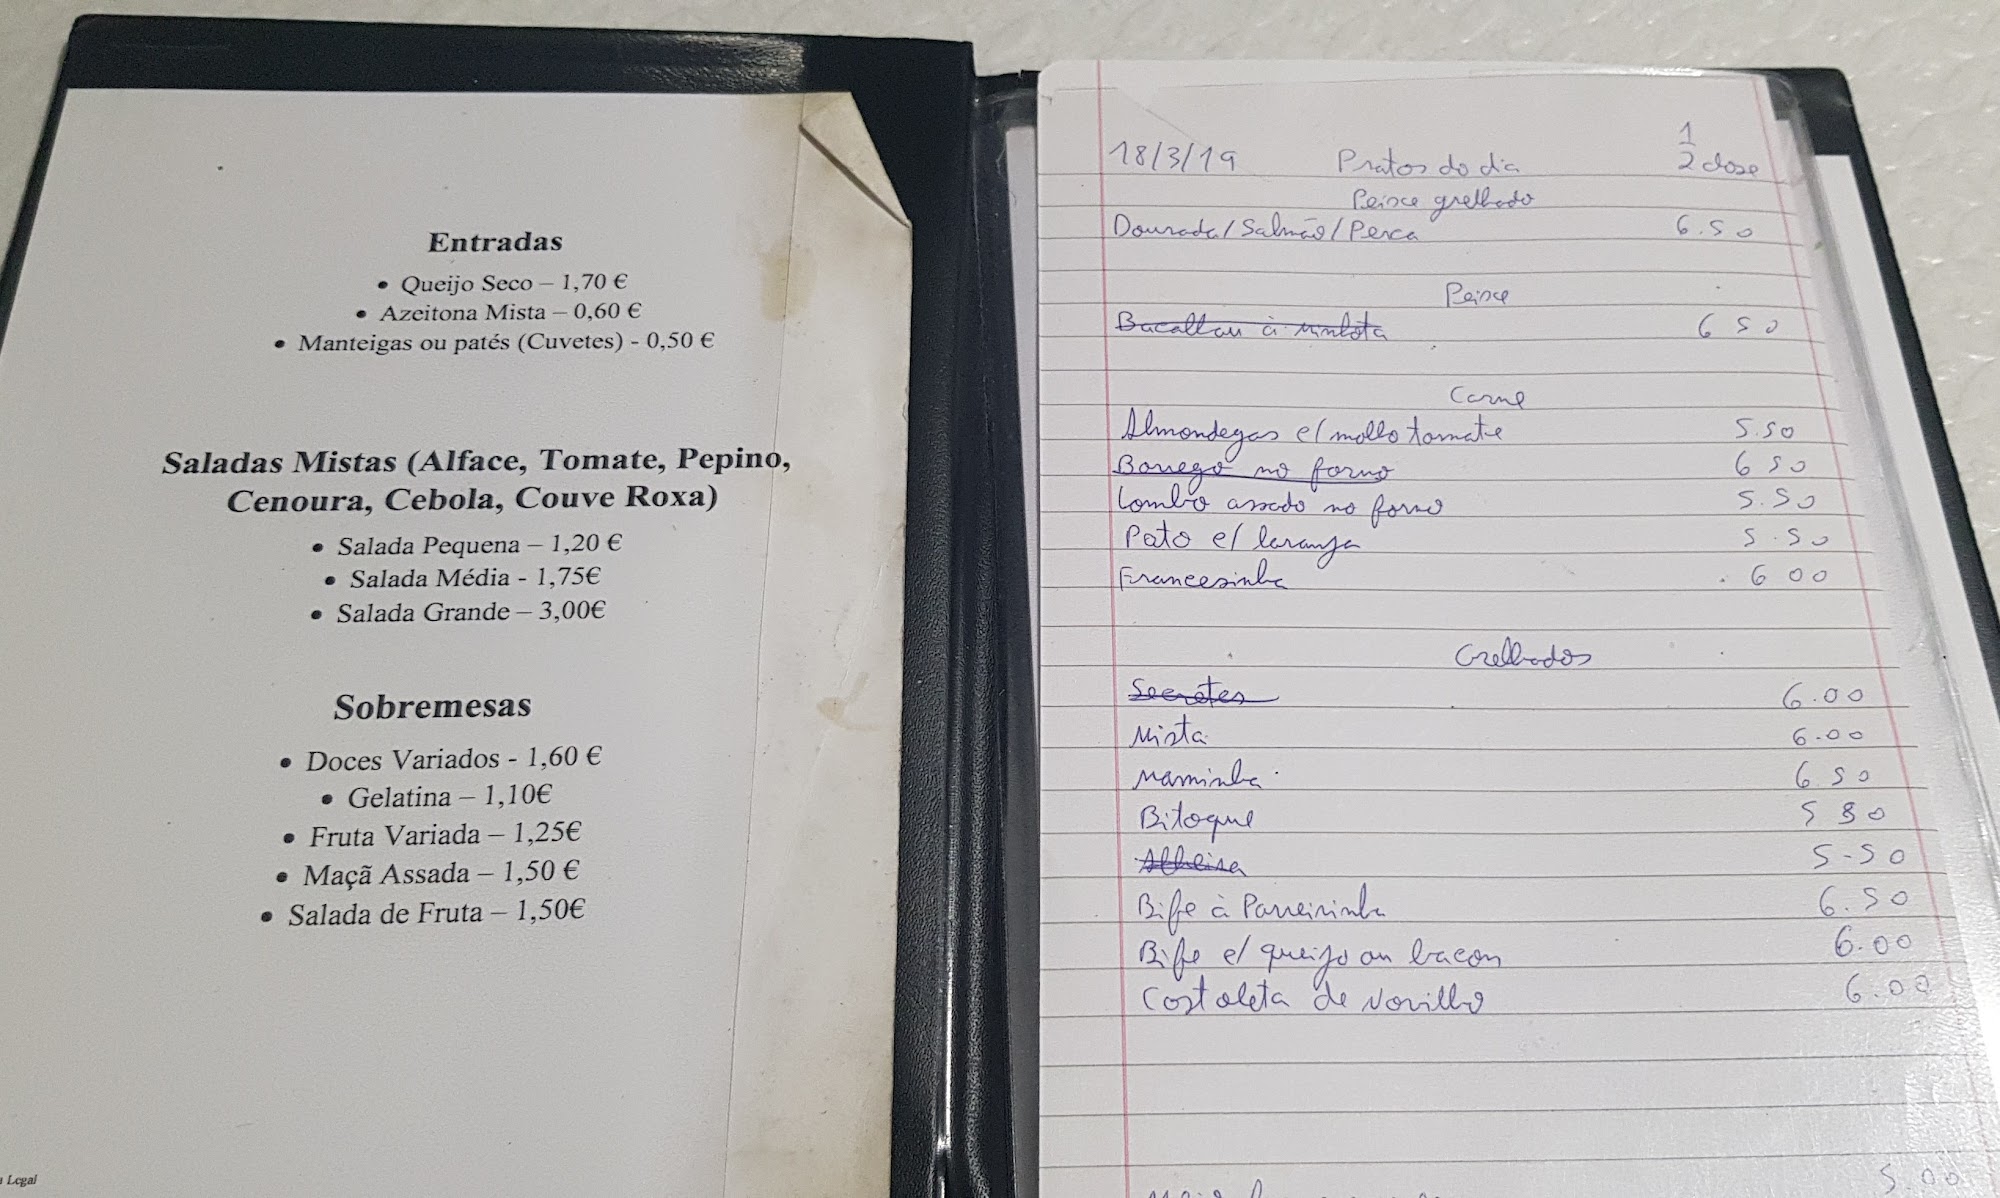 Entradas
• Queijo Seco – 1,70 €
• Azeitona Mista – 0,60 €
• Manteigas ou patés (Cuvetes) - 0,50 €
Saladas Mistas (Alface, Tomate, Pepino,
Cenoura, Cebola, Couve Roxa)
• Salada Pequena – 1,20 €
• Salada Média - 1,75€
• Salada Grande – 3,00€
Sobremesas
• Doces Variados - 1,60 €
• Gelatina – 1,10€
• Fruta Variada – 1,25€
• Maçã Assada – 1,50 €
• Salada de Fruta – 1,50€
Legal
18/3/19 Pratos do dia 1/2 dose
Peixe grelhado
Dourada/Salmão/Perca 6.50
Peixe
Bacalhau à minhota 6 50
Carne
Almondegas c/ molho tomate 5.50
Borrego no forno 6 50
Lombo assado no forno 5.50
Pato c/ laranja 5.50
Francesinha 6 00
Grelhados
Secretos 6.00
Mista 6.00
Maminha 6 50
Bitoque 5 80
Alheira 5-50
Bife à Parreirinha 6.50
Bife c/ queijo ou bacon 6.00
Costoleta de Novilho 6.00
5.00